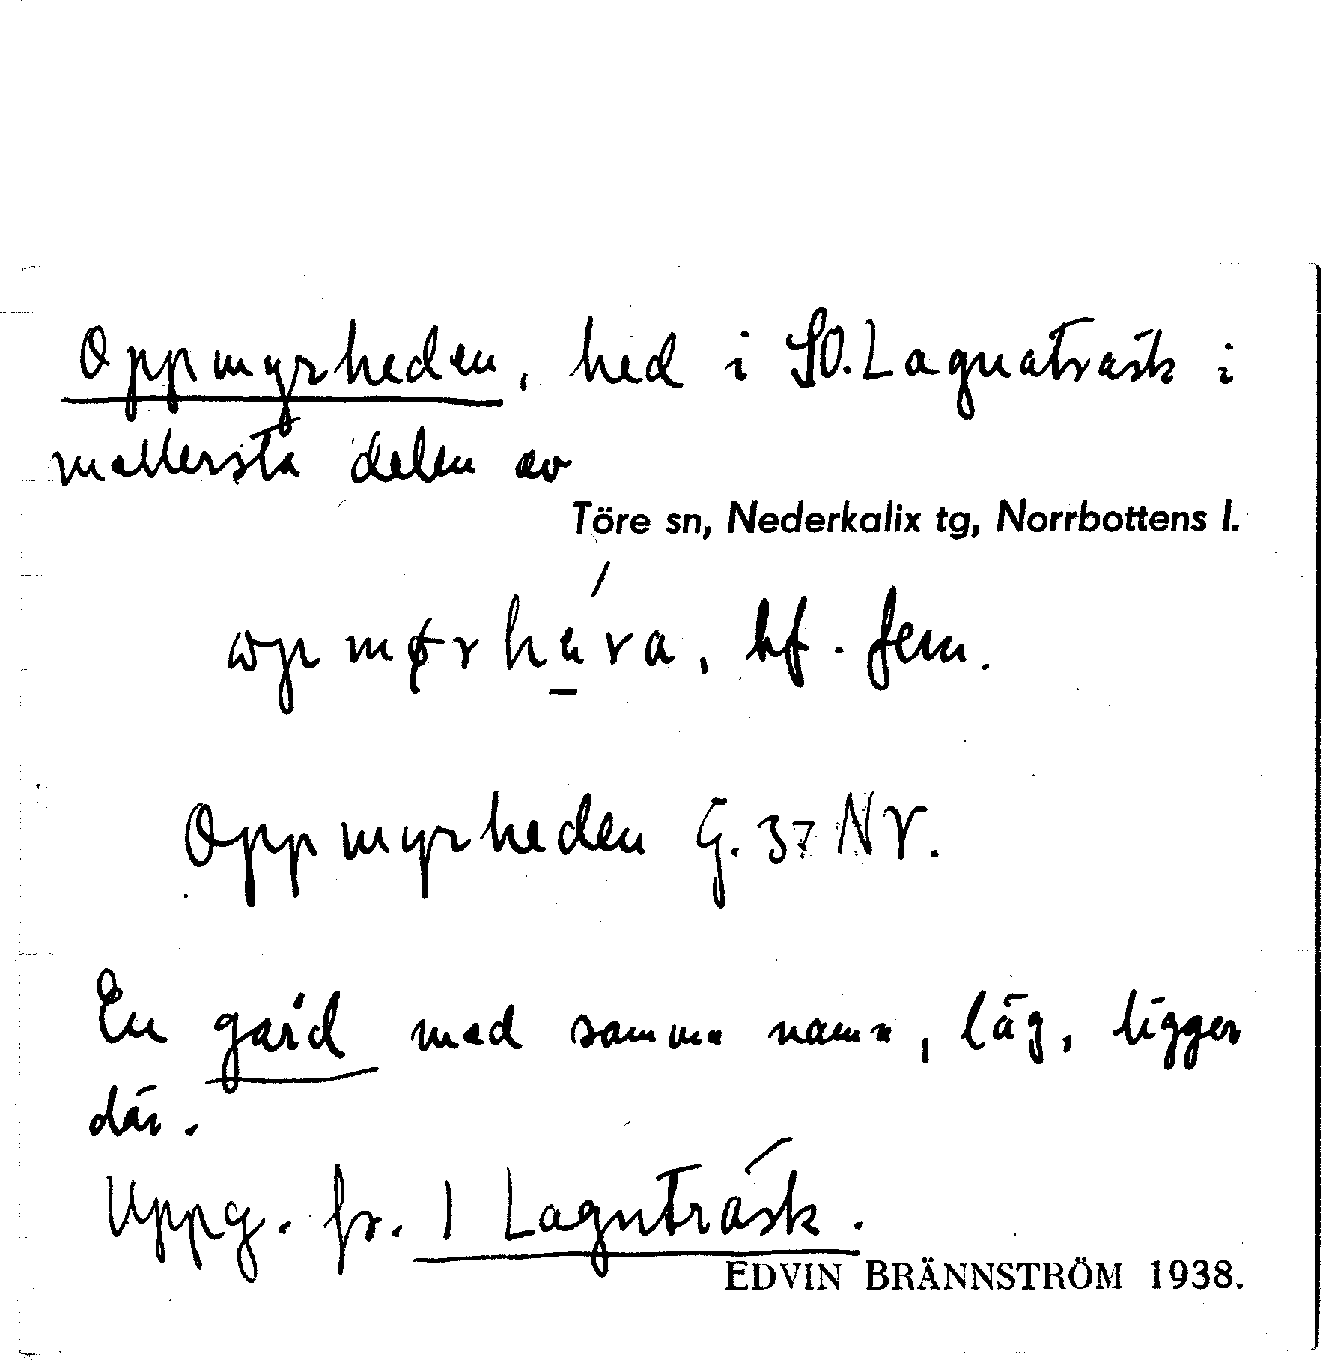 Oppmyrheden, hed i SO. Lagnaträsk i
mellersta delen av
Töre sn, Nederkalix tg, Norrbottens l.
Oppmyrheden G. 37 NV.
En gård med samma namn, läg, ligger
där.
Uppg. fr. 1 Lagnträsk.
EDVIN BRÄNNSTRÖM 1938.